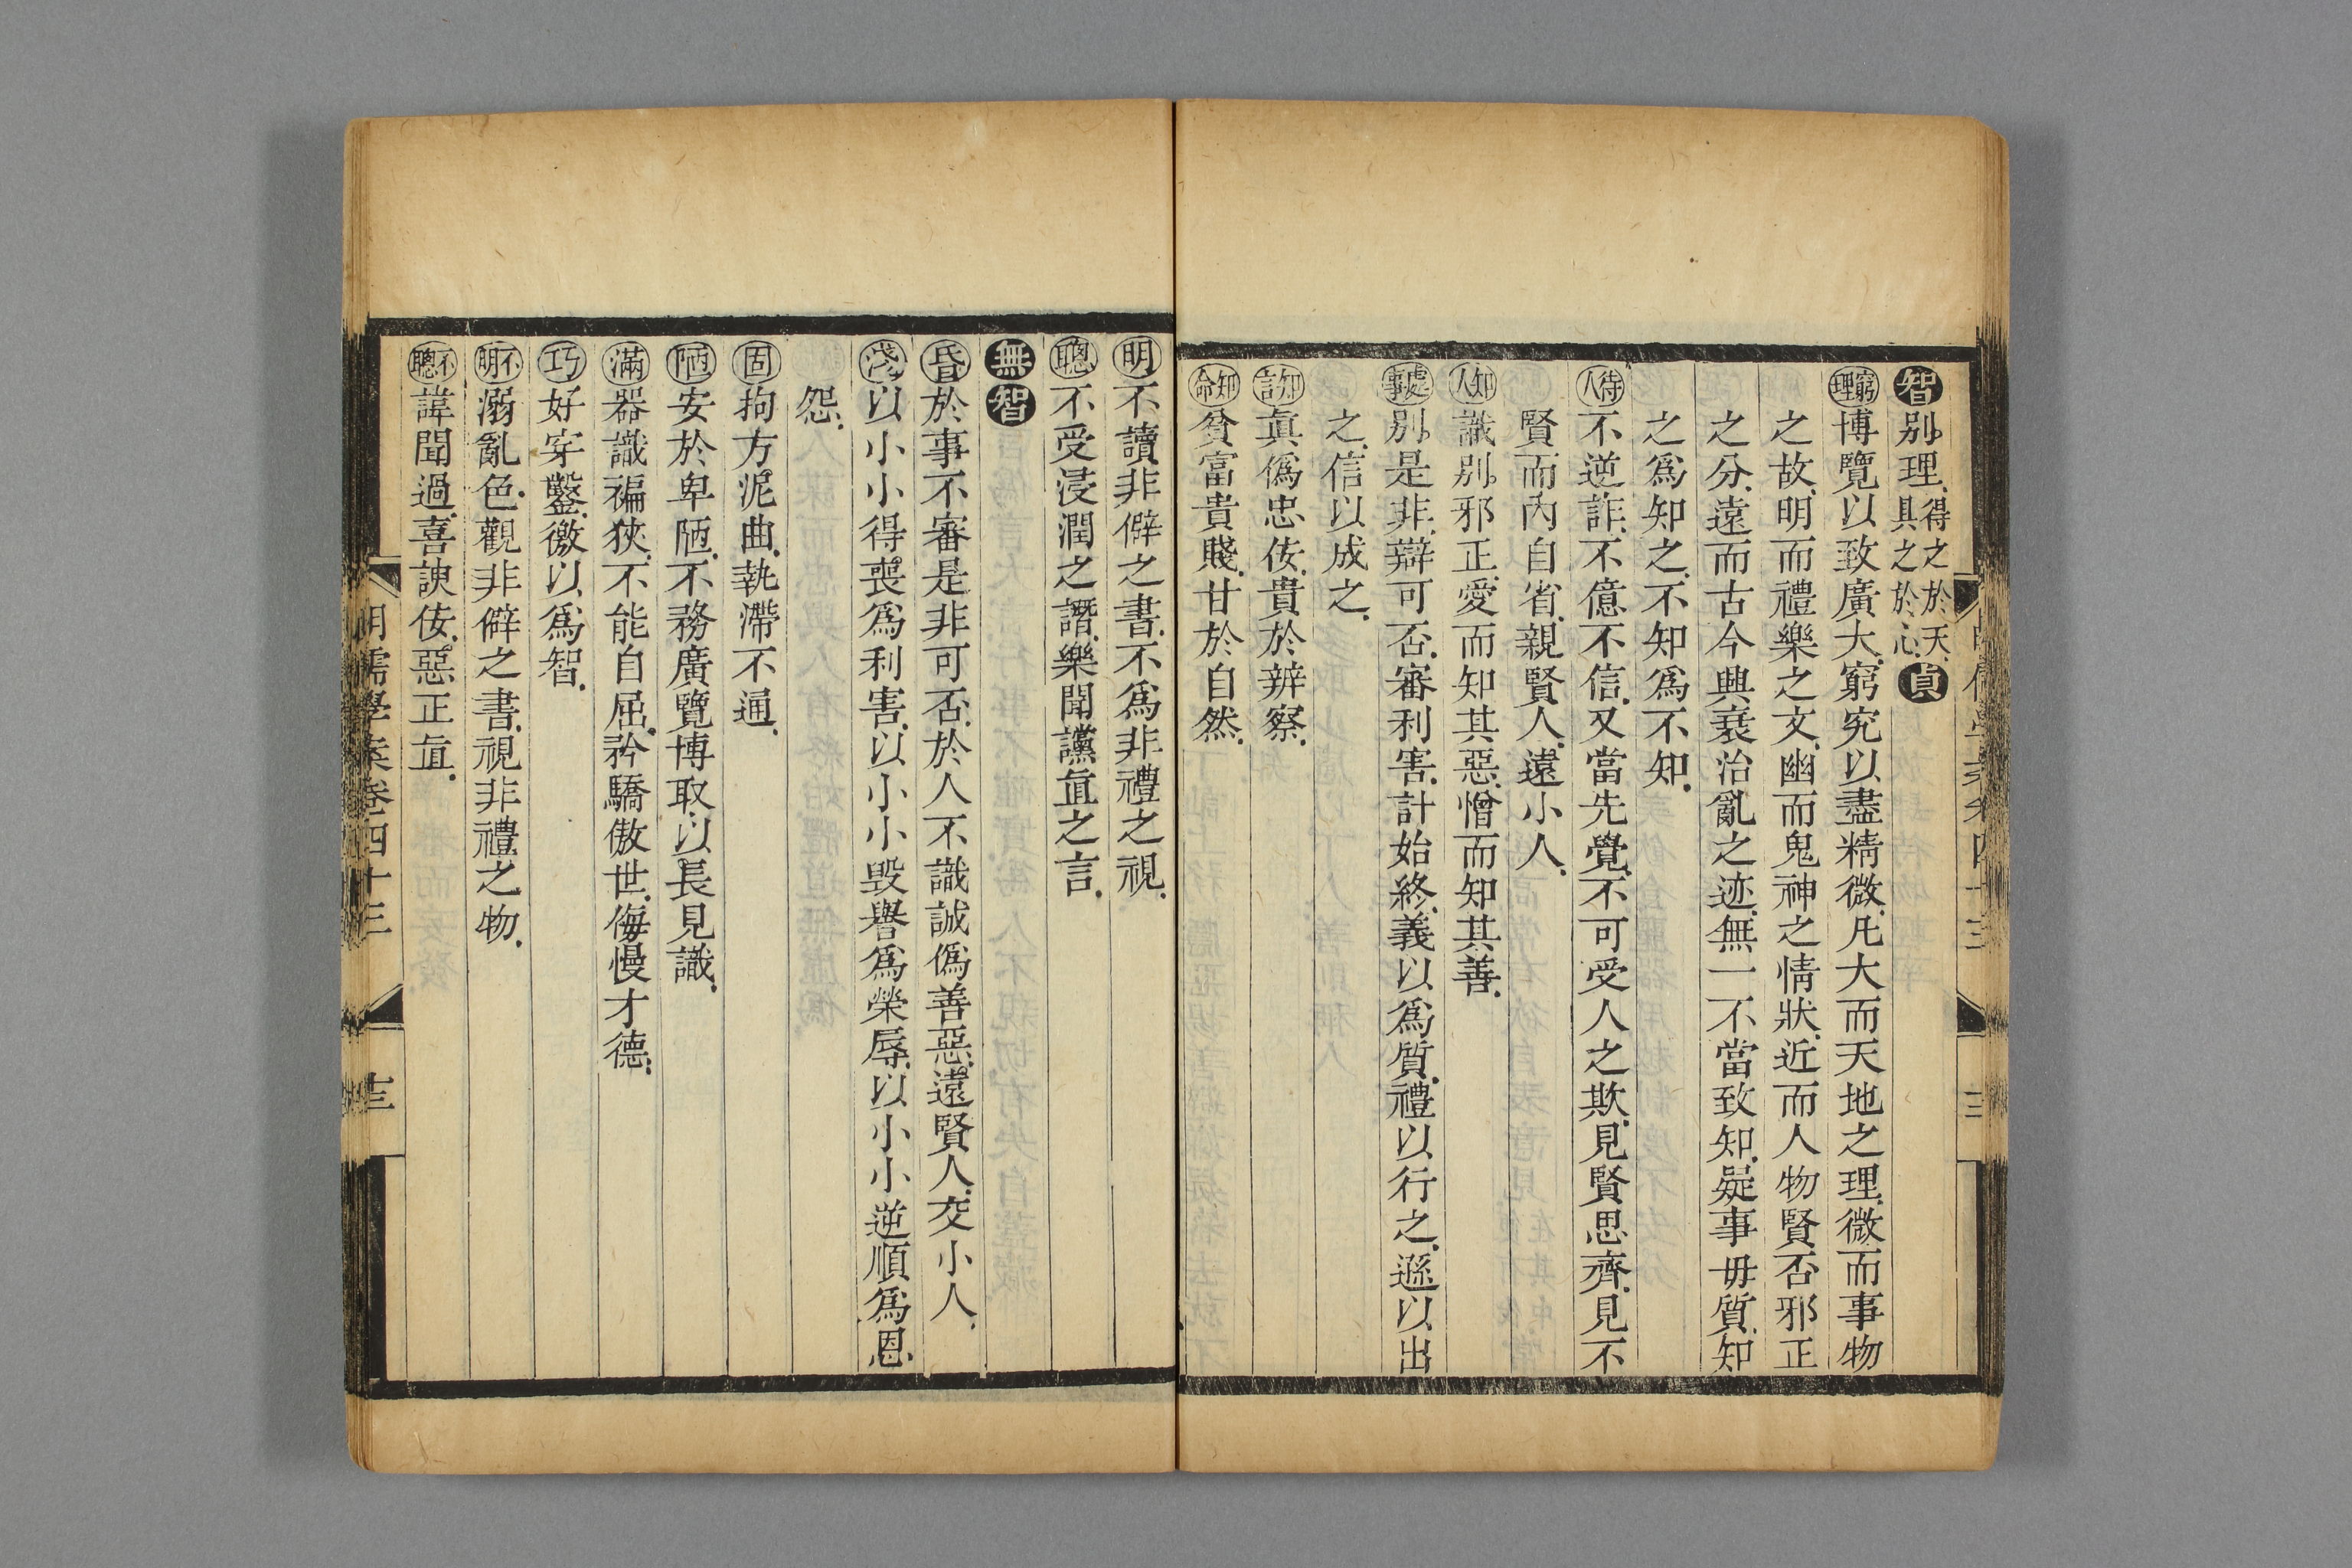 智別理得之於天具之於心貞
窮理博覽以致廣大窮究以盡精微凡大而天地之理微而事物
之故明而禮樂之文幽而鬼神之情狀近而人物賢否邪正
之分遠而古今興衰治亂之迹無一不當致知疑事毋質知
之爲知之不知爲不知
待人不逆詐不億不信又當先覺不可受人之欺見賢思齊見不
賢而內自省親賢人遠小人
知人識別邪正愛而知其惡憎而知其善
處事別是非辯可否審利害計始終義以爲質禮以行之遜以出
之信以成之
知言眞僞忠侫貴於辨察
知命貧富貴賤甘於自然
明不讀非僻之書不爲非禮之視
聰不受浸潤之譖樂聞讜直之言
無智
昏於事不審是非可否於人不識誠僞善惡遠賢人交小人
淺以小小得喪爲利害以小小毀譽爲榮辱以小小逆順爲恩
怨
固拘方泥曲執滯不通
陋安於卑陋不務廣覽博取以長見識
滿器識褊狹不能自屈矜驕傲世侮慢才德
巧好穿鑿徼以爲智
不明溺亂色觀非僻之書視非禮之物
不聰諱聞過喜諛侫惡正直
明儒學案卷四十三